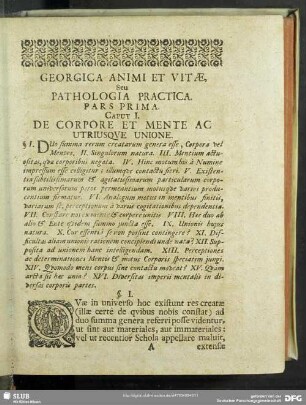 GEORGICA ANIMI ET VITÆ,
Seu
PATHOLOGIA PRACTICA.
PARS PRIMA.
CAPUT I.
DE CORPORE ET MENTE AC
UTRIUSQVE UNIONE.
§ I. Duo summa rerum creatarum genera esse, Corpora vel
Mentes. II. Singulorum natura. III. Mentium actu-
ositas, qvæ corporibus negata. IV. Hinc motum his à Numine
impressum esse colligitur; illumqve contactu fieri. V. Existen-
tia subtilissimarum & agitatissimarum particularum corpo-
rum universorum poros permeantium motusqve varios produ-
centium firmatur. VI. Analogum motus in mentibus finitis,
VII. Constare hominem mente & corpore unitis VIII. Hæc duo ab
alio & Ente eodem summo juncta esse. IX. Unionis hujus
natura. X. Cur essentiæ rerum possint contingere? XI. Dif-
ficultas aliam unionis rationem concipiendi unde nata? XII. Sup-
posita ad unionem hanc intelligendam. XIII. Perceptiones
ac determinationes Mentis & motus Corporis specialim jungi.
XIV. Qvomodo mens corpus sine contactu moveat? XV. Qvam
arcta sit hæc unio? XVI. Diversitas imperii mentalis in di-
versas corporis partes.
§ I.
Qvæ in universo hoc existunt res creatæ
(illæ certè de qvibus nobis constat) ad
duo summa genera referri posse videntur,
ut sint aut materiales, aut immateriales:
vel ut recentior Schola appellare maluit,
A extensæ
SLUB
DFG